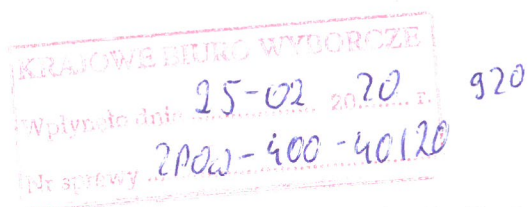 KRAJOWE BIURO WYBORCZE
Wpłynęło dnia 25-02 2020 r. 920
Nr sprawy ZPOW-400-40/20